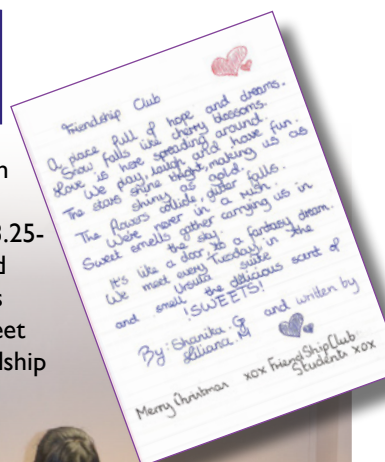 Friendship Club
A place full of hope and dreams.
Snow falls like cherry blossoms.
Love is here spreading around.
We play, laugh and have fun.
The stars shine bright, making us as
shiny as gold.
The flavors collide, glitter falls.
We're never in a rush.
Sweet smells gather carrying us in
the sky.
It's like a door to a fantasy dream.
We meet every Tuesday, in the
Ursula suite
and smell the delicious scent of
!SWEETS!
By: Shanika. G and written by
Liliana. M
Merry Christmas xox FriendShip Club
Students xox
3.25-
eet
dship